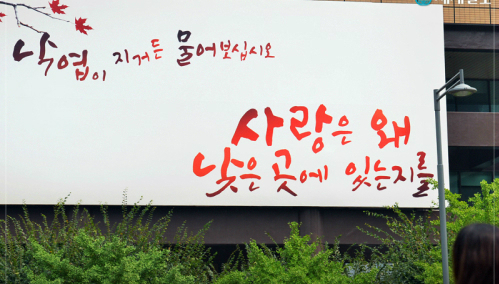 낙엽이 지거든 물어보십시오
사랑은 왜
낮은 곳에 있는지를